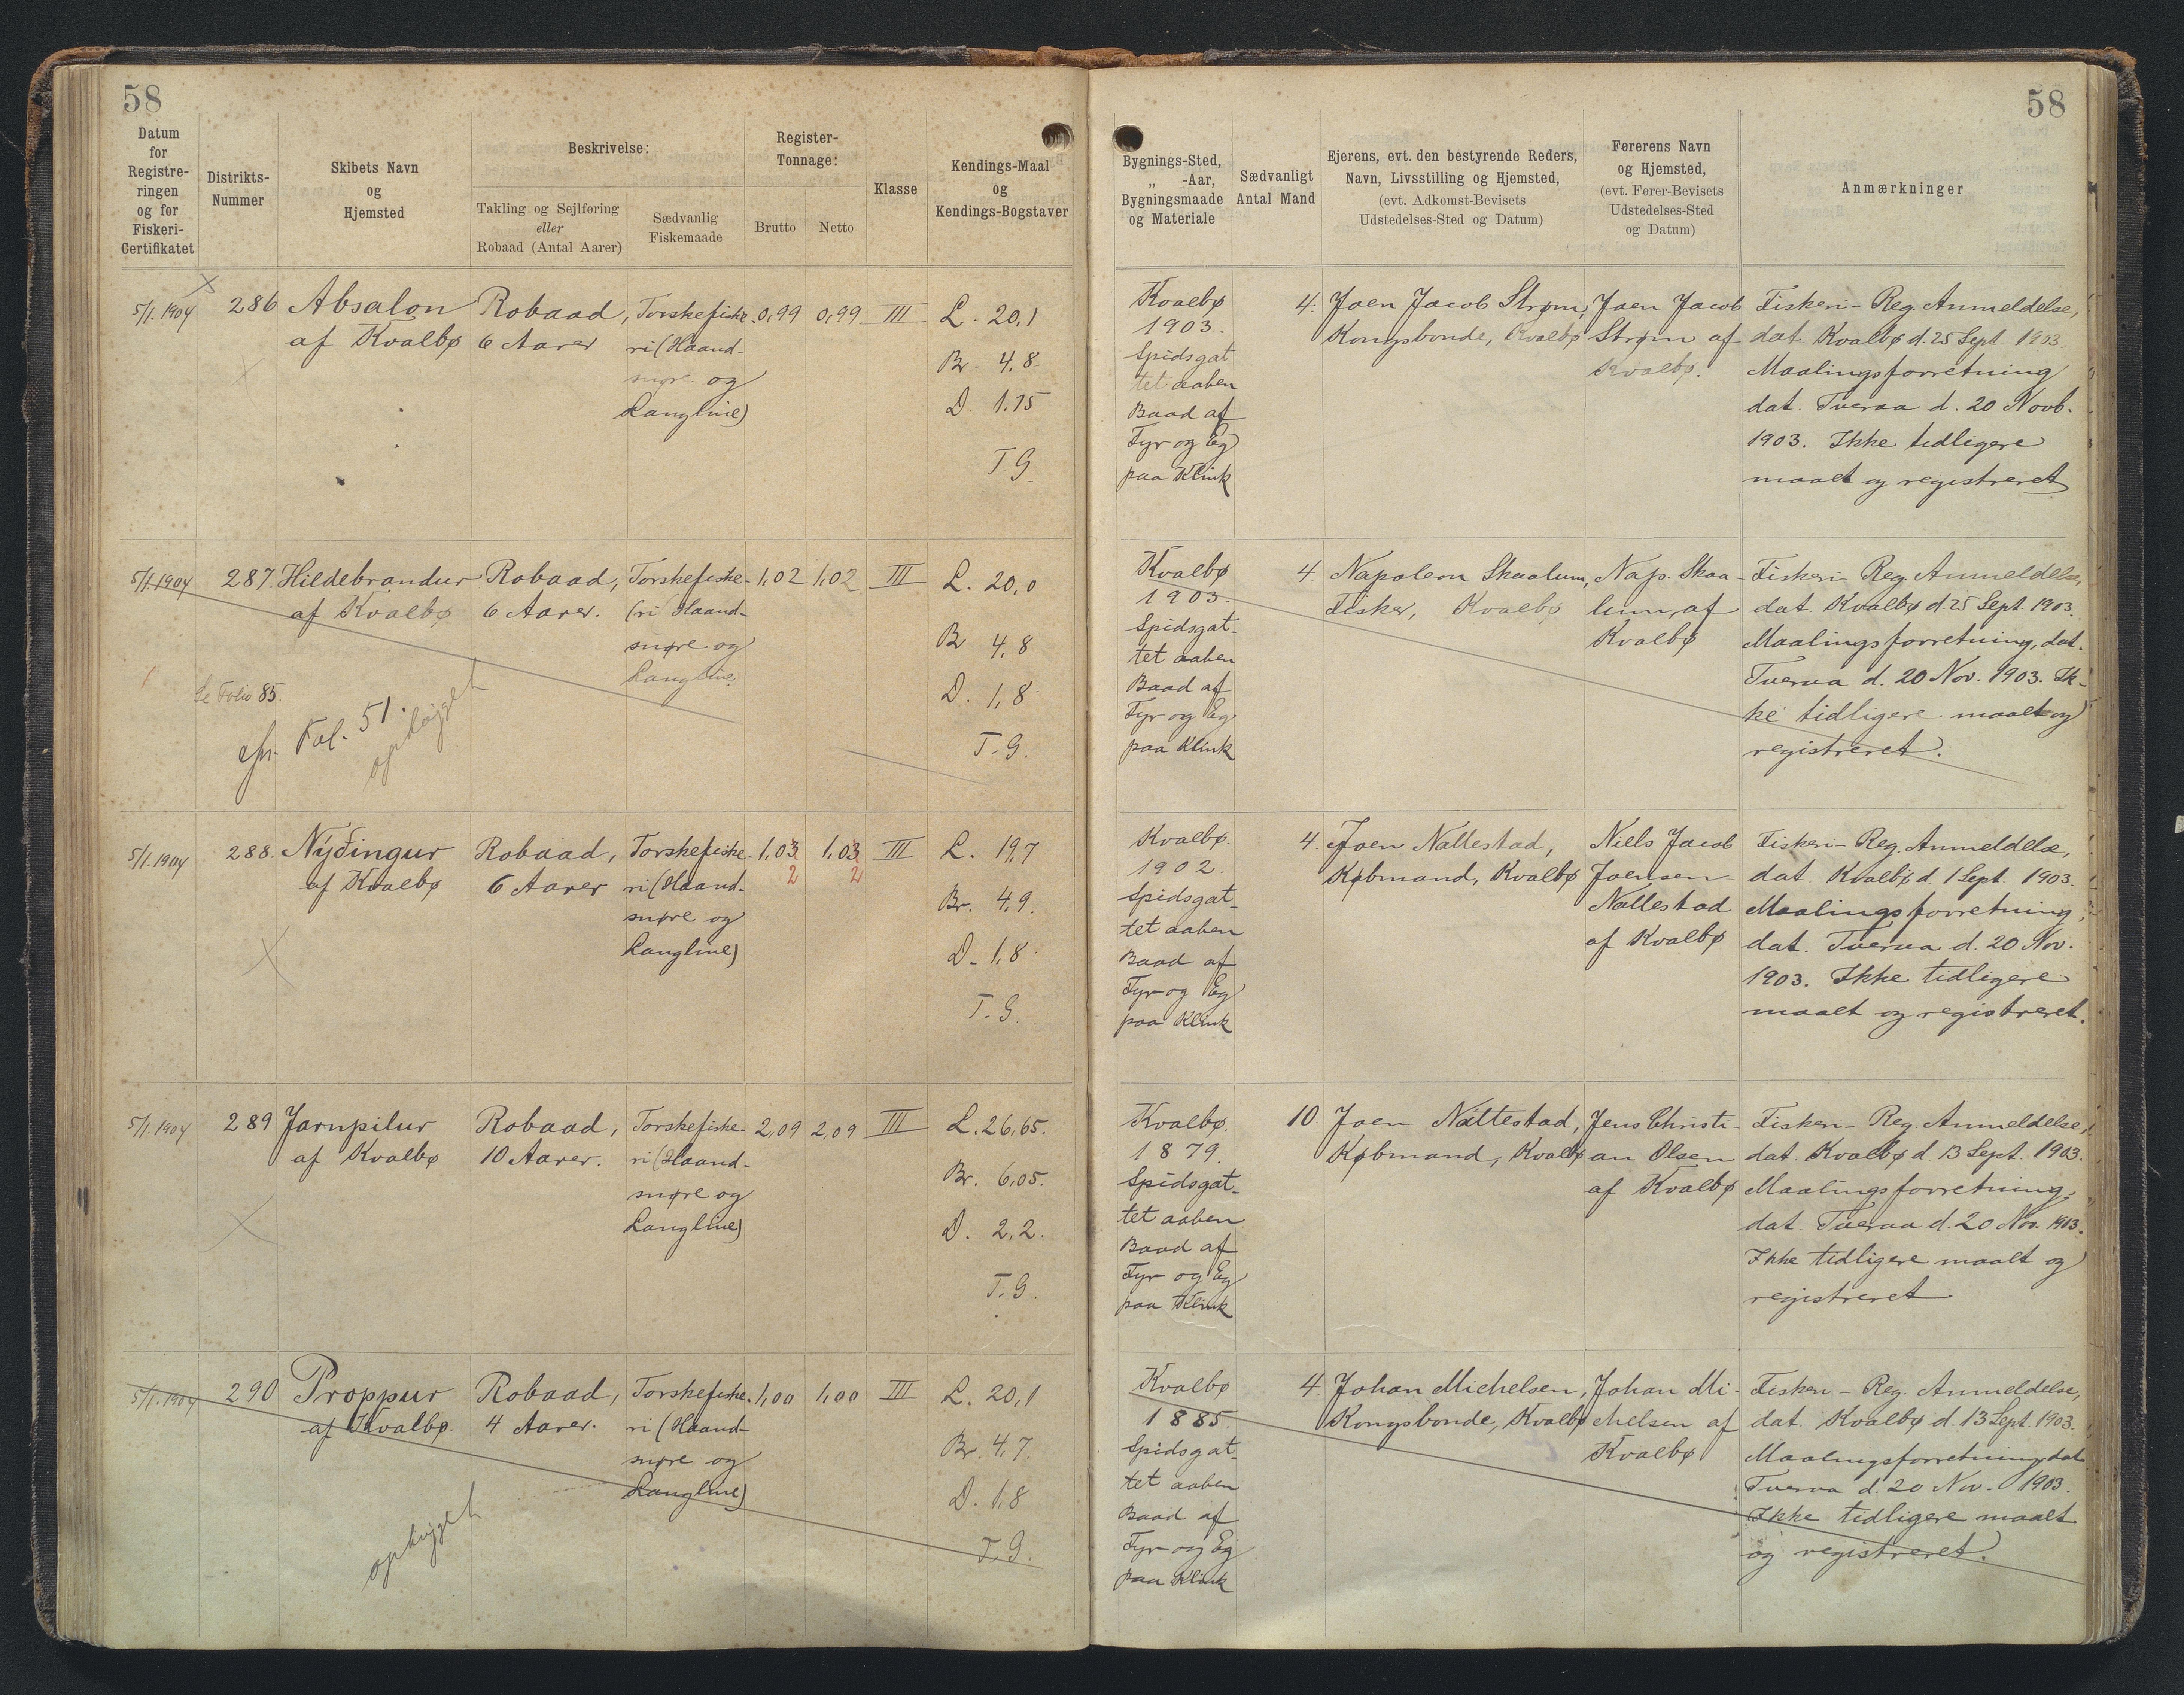 58
58
Datum
for
Registre-
ringen
og for
Fiskeri-
Certifikatet
Distrikts-
Nummer
Skibets Navn
og
Hjemsted
Beskrivelse:
Takling og Sejlføring
eller
Robaad (Antal Aarer)
Sædvanlig
Fiskemaade
Register-
Tonnage:
Brutto
Netto
Klasse
Kendings-Maal
og
Kendings-Bogstaver
Bygnings-Sted,
„ -Aar,
Bygningsmaade
og Materiale
Sædvanligt
Antal Mand
Ejerens, evt. den bestyrende Reders,
Navn, Livsstilling og Hjemsted,
(evt. Adkomst-Bevisets
Udstedelses-Sted og Datum)
Førerens Navn
og Hjemsted,
(evt. Fører-Bevisets
Udstedelses-Sted
og Datum)
Anmærkninger
5/1.1904
286
Absalon
af Kvalbø
Robaad,
6 Aarer
Torskefiske-
ri (Haand-
snøre og
Langline)
0,99
0,99
III
L. 20,1
Br. 4,8
D. 1.75
T G.
Kvalbø
1903.
Spidsgat
tet aaben
Baad af
Fyr og Eg
paa Klink
4.
Joen Jacob Strøm,
Kongsbonde, Kvalbø
Joen Jacob
Strøm af
Kvalbø.
Fiskeri-Reg. Anmeldelse,
dat. Kvalbø d. 25 Sept. 1903.
Maalingsforretning
dat. Tveraa d. 20 Novb.
1903. Ikke tidligere
maalt og registreret
5/1.1904
287.
Hildebrandur
af Kvalbø
Robaad,
6 Aarer.
Torskefiske-
(ri Haand-
snøre og
Langline.
1,02
1,02
III
L. 20,0
Br 4,8
D. 1,8
T. G.
Se Folio 85.
cfr. Fol. 51.
ophugget
Kvalbø
1903.
Spidsgat-
tet aaben
Baad af
Fyr og Eg
paa Klink
4.
Napoleon Skaalum,
Fisker, Kvalbø
Nap. Skaa-
lum, af
Kvalbø
Fiskeri-Reg. Anmeldelse,
dat. Kvalbø d. 25 Sept. 1903.
Maalingsforretning, dat.
Tveraa d. 20 Nov. 1903. Ik-
ke tidligere maalt og
registreret.
5/1.1904
288.
Nýðingur
af Kvalbø
Robaad,
6 Aarer
Torskefiske-
ri (Haand-
snøre og
Langline)
1,03
2
1,03
2
III
L. 19,7
Br. 4,9.
D. 1,8
T. G.
Kvalbø.
1902.
Spidsgat-
tet aaben
Baad af
Fyr og Eg
paa Klink
4.
Joen Nattestad,
Købmand, Kvalbø
Niels Jacob
Joensen
Nattestad
af Kvalbø
Fiskeri-Reg. Anmeldelse,
dat. Kvalbø d. 1 Sept. 1903.
Maalingsforretning,
dat. Tveraa d. 20 Nov.
1903. Ikke tidligere
maalt og registreret.
5/1.1904
289
Jarnpilur
af Kvalbø
Robaad,
10 Aarer.
Torskefiske-
ri (Haand-
snøre og
Langline)
2,09
2,09
III
L. 26,65.
Br. 6,05.
D. 2,2.
T. G.
Kvalbø.
1879.
Spidsgat-
tet aaben
Baad af
Fyr og Eg
paa Klink
10.
Joen Nattestad,
Købmand, Kvalbø
Jens Christi-
an Olsen
af Kvalbø
Fiskeri-Reg. Anmeldelse,
dat. Kvalbø d. 13 Sept. 1903.
Maalingsforretning,
dat. Tveraa d. 20 Nov. 1903.
Ikke tidligere maalt og
registreret
5/1.1904
290
Proppur
af Kvalbø.
Robaad,
4 Aarer.
Torskefiske-
ri (Haand-
snøre og
Langline)
1,00
1,00
III
L. 20,1
Br. 4,7.
D. 1,8
T. G.
ophugget
Kvalbø
1885.
Spidsgat-
tet aaben
Baad af
Fyr og Eg
paa Klink
4.
Johan Michelsen,
Kongsbonde, Kvalbø
Johan Mi-
chelsen af
Kvalbø
Fiskeri-Reg. Anmeldelse,
dat. Kvalbø d. 13 Sept. 1903.
Maalingsforretning, dat
Tveraa d. 20 Nov. 1903.
Ikke tidligere maalt
og registreret.